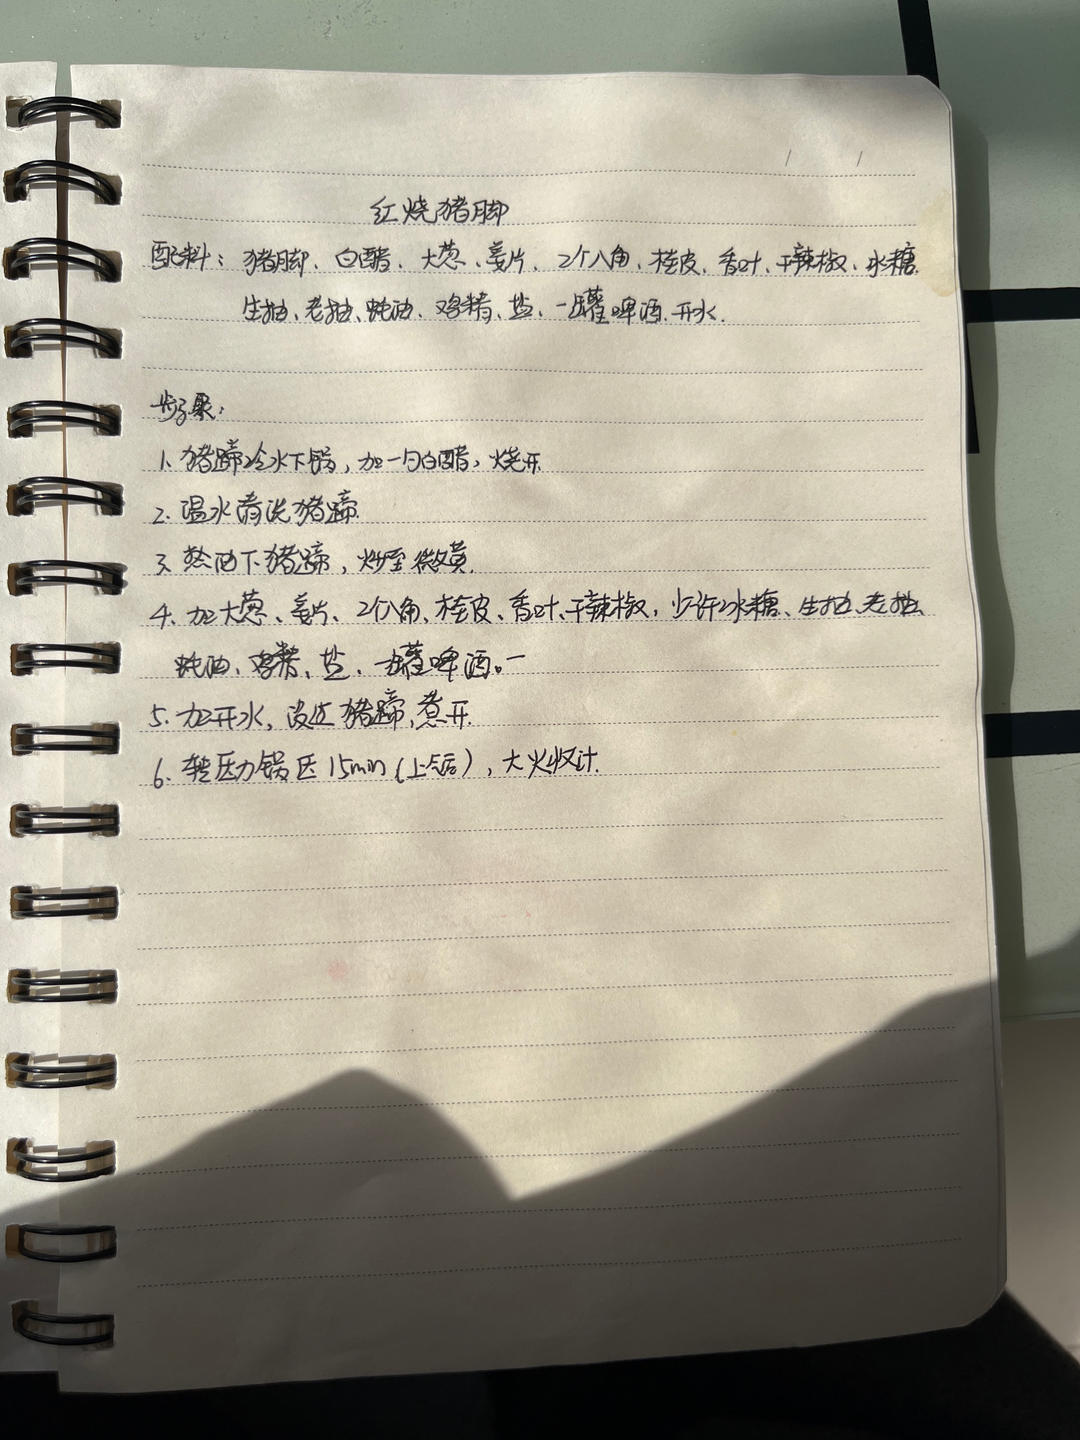 红烧猪脚
配料：猪脚、白醋、大葱、姜片、2个八角、桂皮、香叶、干辣椒、冰糖
生抽、老抽、蚝油、鸡精、盐、一罐啤酒、开水.
步骤：
1、猪蹄冷水下锅，加一勺白醋，烧开
2、温水清洗猪蹄
3、热油下猪蹄，炒至微黄.
4、加大葱、姜片、2个八角、桂皮、香叶、干辣椒，少许冰糖、生抽、老抽
蚝油、鸡精、盐、一罐啤酒。
5、加开水，没过猪蹄，煮开.
6、转压力锅压15min（上气后），大火收汁.